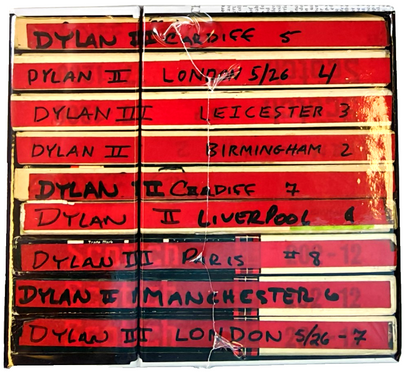 DYLAN III CARDIFF 5
DYLAN II LONDON 5/26 4
DYLAN III LEICESTER 3
DYLAN II BIRMINGHAM 2
DYLAN III CARDIFF 7
DYLAN II LIVERPOOL
Trade Mark
DYLAN III PARIS #8
DYLAN II MANCHESTER 6
DYLAN III LONDON 5/26-7